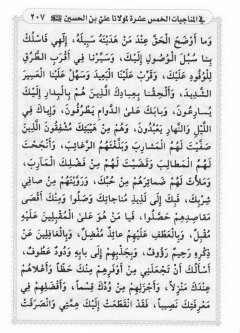 في المناجيات الخمس عشرة لمولانا علي بن الحسين ٢٠٧
وَما أَوْضَحَ الْحَقَّ عِنْدَ مَنْ هَدَيْتَهُ سَبِيلَهُ، إِلٰهِي فَاسْلُكْ
بِنا سُبُلَ الْوُصُولِ إِلَيْكَ، وَسَيِّرْنا فِي أَقْرَبِ الطُّرُقِ
لِلْوُفُودِ عَلَيْكَ، وَقَرِّبْ عَلَيْنَا الْبَعِيدَ وَسَهِّلْ عَلَيْنَا الْعَسِيرَ
الشَّدِيدَ، وَأَلْحِقْنا بِعِبادِكَ الَّذِينَ هُمْ بِالْبِدارِ إِلَيْكَ
يُسارِعُونَ، وَبابَكَ عَلَى الدَّوامِ يَطْرُقُونَ، وَإِيّاكَ فِي
اللَّيْلِ وَالنَّهارِ يَعْبُدُونَ، وَهُمْ مِنْ هَيْبَتِكَ مُشْفِقُونَ الَّذِينَ
صَفَّيْتَ لَهُمُ الْمَشارِبَ وَبَلَّغْتَهُمُ الرَّغائِبَ، وَأَنْجَحْتَ
لَهُمُ الْمَطالِبَ وَقَضَيْتَ لَهُمْ مِنْ فَضْلِكَ الْمَآرِبَ،
وَمَلَأْتَ لَهُمْ ضَمائِرَهُمْ مِنْ حُبِّكَ، وَرَوَّيْتَهُمْ مِنْ صافِي
شِرْبِكَ، فَبِكَ إِلى لَذِيذِ مُناجاتِكَ وَصَلُوا وَمِنْكَ أَقْصى
مَقاصِدِهِمْ حَصَّلُوا، فَيا مَنْ هُوَ عَلَى الْمُقْبِلِينَ عَلَيْهِ
مُقْبِلٌ، وَبِالْعَطْفِ عَلَيْهِمْ عائِدٌ مُفْضِلٌ، وَبِالْغافِلِينَ عَنْ
ذِكْرِهِ رَحِيمٌ رَؤُوفٌ، وَبِجَذْبِهِمْ إِلى بابِهِ وَدُودٌ عَطُوفٌ،
أَسْأَلُكَ أَنْ تَجْعَلَنِي مِنْ أَوْفَرِهِمْ مِنْكَ حَظّاً وَأَعْلاهُمْ
عِنْدَكَ مَنْزِلاً، وَأَجْزَلِهِمْ مِنْ وُدِّكَ قِسْماً، وَأَفْضَلِهِمْ فِي
مَعْرِفَتِكَ نَصِيباً، فَقَدِ انْقَطَعَتْ إِلَيْكَ هِمَّتِي وَانْصَرَفَتْ